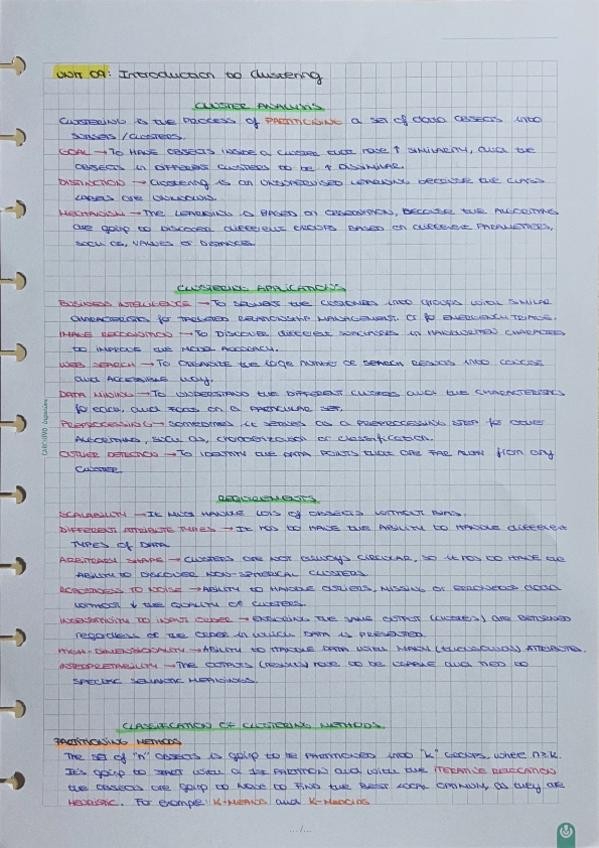 UNIT 09: Introduction to Clustering
CLUSTER ANALYSIS
CLUSTERING is the PROCESS of PARTITIONING a set of data objects into
subsets/clusters.
GOAL → To have objects inside a cluster that have ↑ similarity, and the
objects in different clusters to be ↑ dissimilar.
DISTINCTION → Clustering is an unsupervised learning because the class
labels are unknown.
MECHANISM → The learning is based on observation, because the algorithms
are going to discover different groups based on different parameters,
such as, values or distances.
CLUSTERING APPLICATIONS
BUSINESS INTELLIGENCE → To segment the customers into groups with similar
characteristics for targeted relationship management. Or for emergency
IMAGE RECOGNITION → To discover different subclasses in handwritten characters
to improve the model accuracy.
WEB SEARCH → To organize the large number of search results into concise
and accessible way.
DATA MINING → To understand the different clusters and the characteristics
for each, and focus on a particular set.
PREPROCESSING → Sometimes it serves as a preprocessing step for other
algorithms, such as, characterization or classification.
OUTLIER DETECTION → To identify the data points that are far away from any
cluster.
CUADERNO inteligente
REQUIREMENTS
SCALABILITY → It must handle lots of objects without bias.
DIFFERENT ATTRIBUTE TYPES → It has to have the ability to handle different
types of data
ARBITRARY SHAPE → Clusters are not always circular, so it has to have the
ability to discover non-spherical clusters.
ROBUSTNESS TO NOISE → Ability to handle outliers, missing or erroneous data
without ↓ the quality of clusters.
INSENSITIVITY TO INPUT ORDER → Ensuring the same output (clusters) are returned
regardless of the order in which data is presented.
HIGH-DIMENSIONALITY → Ability to handle data with many (thousands) attributes.
INTERPRETABILITY → The outputs (results) have to be usable and tied to
specific semantic meanings.
CLASSIFICATION OF CLUSTERING METHODS
PARTITIONING METHODS
The set of "n" objects is going to be partitioned into "k" groups, where n≥k.
It's going to start with a 1st partition and with the ITERATIVE RELOCATION
the objects are going to move to find the best local optimum, as they are
HEURISTIC. For example K-MEANS and K-MEDOIDS
.../...